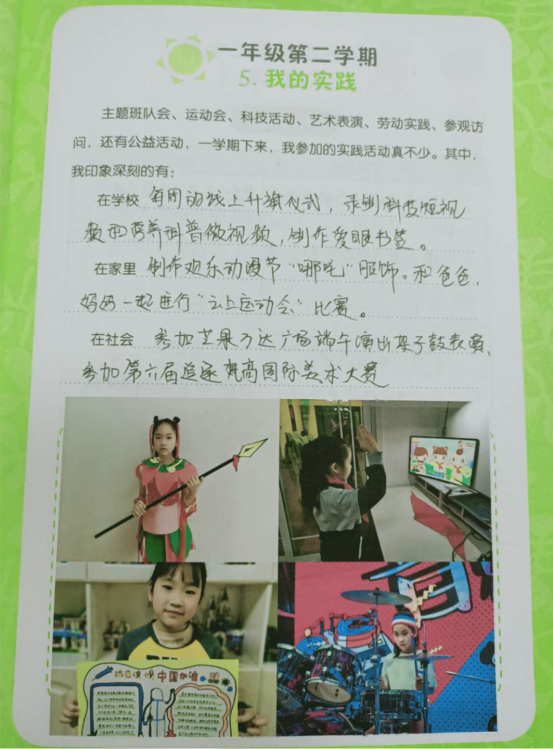 一年级第二学期
5. 我的实践
主题班队会、运动会、科技活动、艺术表演、劳动实践、参观访
问，还有公益活动，一学期下来，我参加的实践活动真不少。其中，
我印象深刻的有：
在学校 每周动线上升旗仪式，录制科技短视
频和营养科普微视频，制作爱眼书签。
在家里 制作欢乐动漫节“哪吒”服饰。和爸爸，
妈妈一起进行“云上运动会”比赛。
在社会 参加芒果万达广场端午演出架子鼓表演，
参加第六届追逐梵高国际美术大赛
中国加油